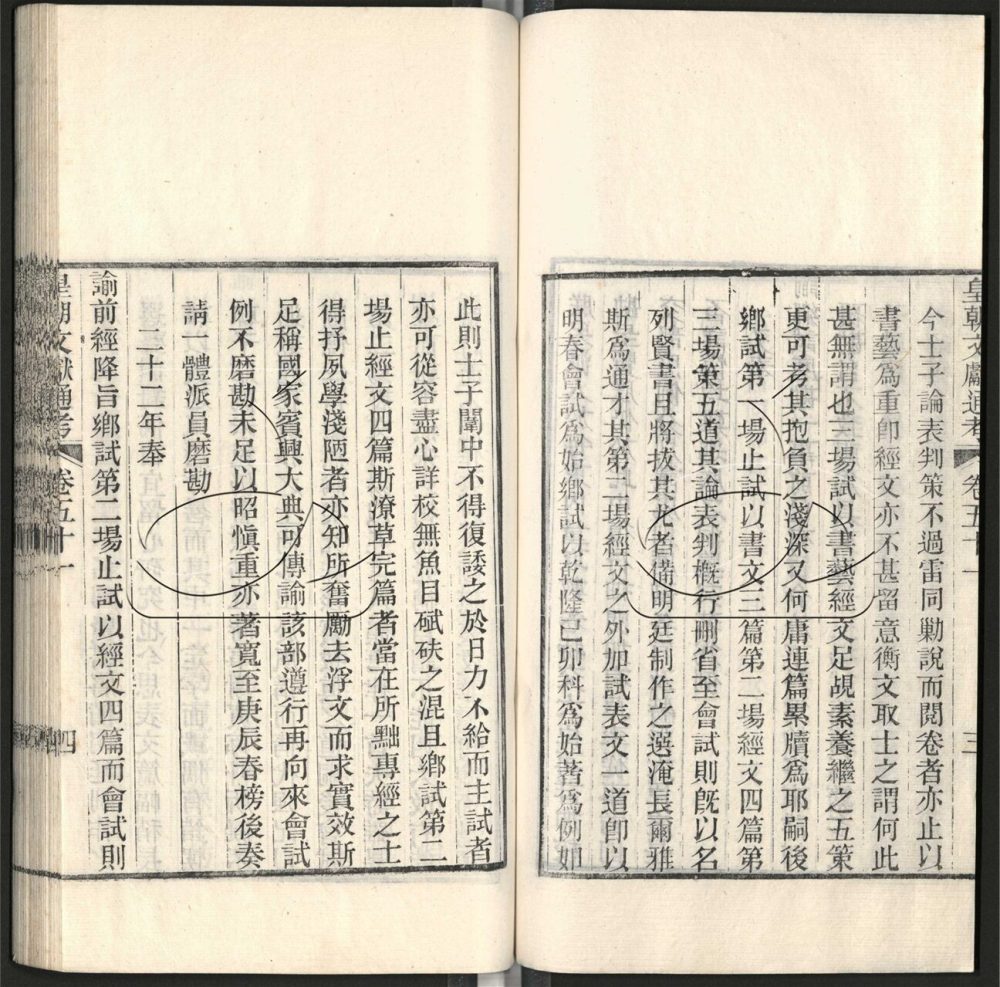 皇朝文獻通考 卷五十一 三
今士子論表判策不過雷同勦說而閱卷者亦止以
書藝爲重卽經文亦不甚留意衡文取士之謂何此
甚無謂也三場試以書藝經文足覘素養繼之五策
更可考其抱負之淺深又何庸連篇累牘爲耶嗣後
鄉試第一場止試以書文三篇第二場經文四篇第
三場策五道其論表判槪行刪省至會試則旣以名
列賢書且將拔其尤者備明廷制作之選淹長爾雅
斯爲通才其第二場經文之外加試表文一道卽以
明春會試爲始鄉試以乾隆己卯科爲始著爲例如
此則士子闈中不得復諉之於日力不給而主試者
亦可從容盡心詳校無魚目碔砆之混且鄉試第二
場止經文四篇斯潦草完篇者當在所黜專經之士
得抒夙學淺陋者亦知所奮勵去浮文而求實效斯
足稱國家賓興大典可傳諭該部遵行再向來會試
例不磨勘未足以昭愼重亦著寬至庚辰春榜後奏
請一體派員磨勘
二十二年奉
諭前經降旨鄉試第二場止試以經文四篇而會試則
皇朝文獻通考 卷五十一 四